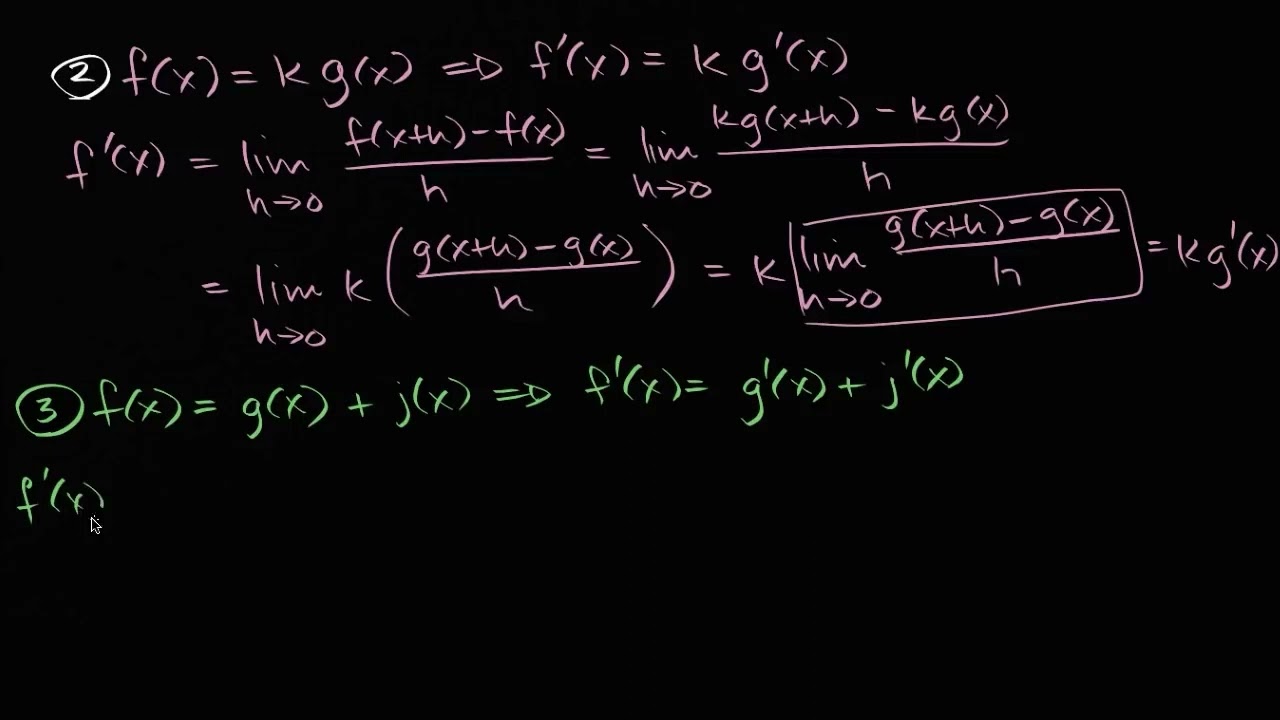 ② f(x) = k g(x) ⇒ f'(x) = k g'(x)
f'(x) = lim h→0 f(x+h)-f(x) / h = lim h→0 kg(x+h) - kg(x) / h
= lim h→0 k ( g(x+h)-g(x) / h ) = k lim h→0 g(x+h)-g(x) / h = k g'(x)
③ f(x) = g(x) + j(x) ⇒ f'(x) = g'(x) + j'(x)
f'(x)